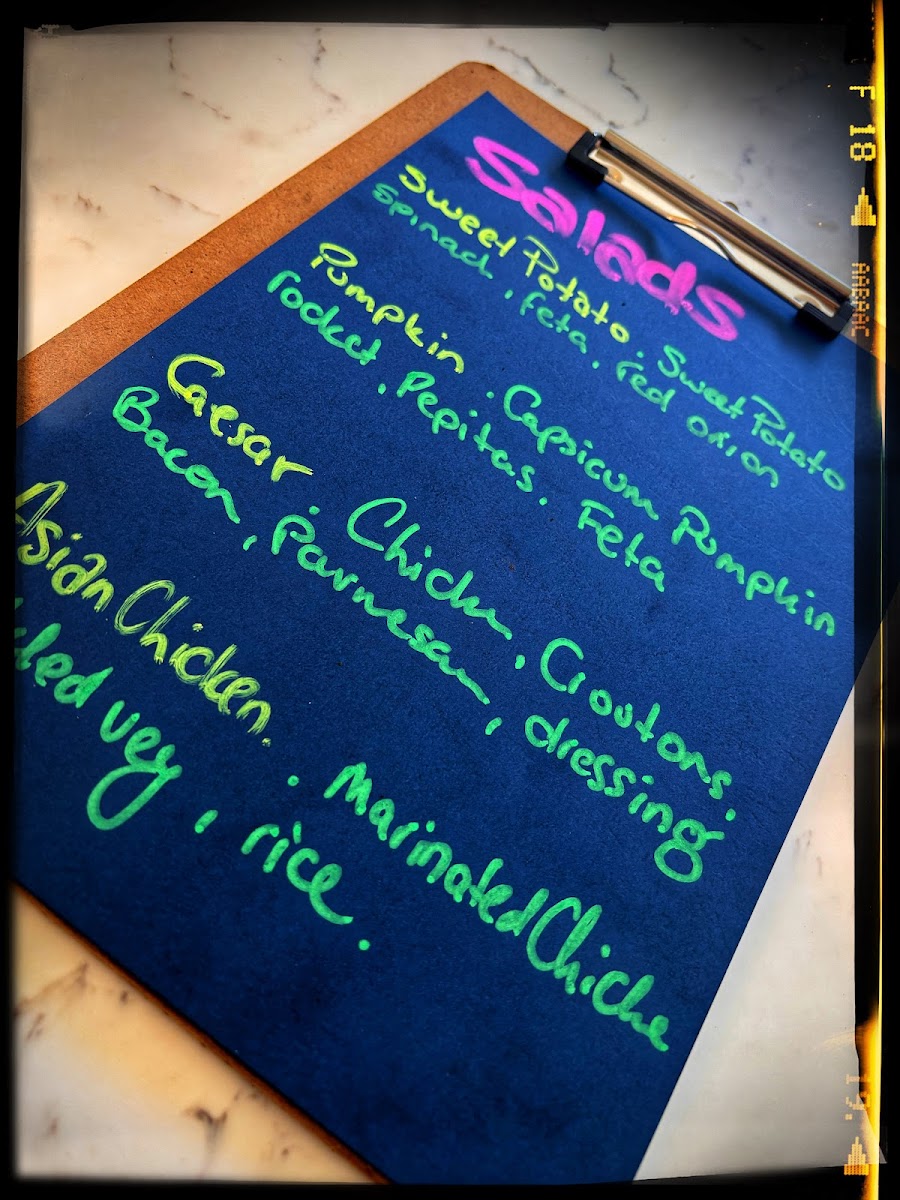 Salads
Sweet Potato . Sweet Potato
Spinach , feta . red onion
Pumpkin . Capsicum Pumpkin
rocket . Pepitas . Feta
Caesar . Chicken , Croutons .
Bacon , Parmesan , dressing
Asian Chicken . . Marinated Chicke
veg , rice .
F 18